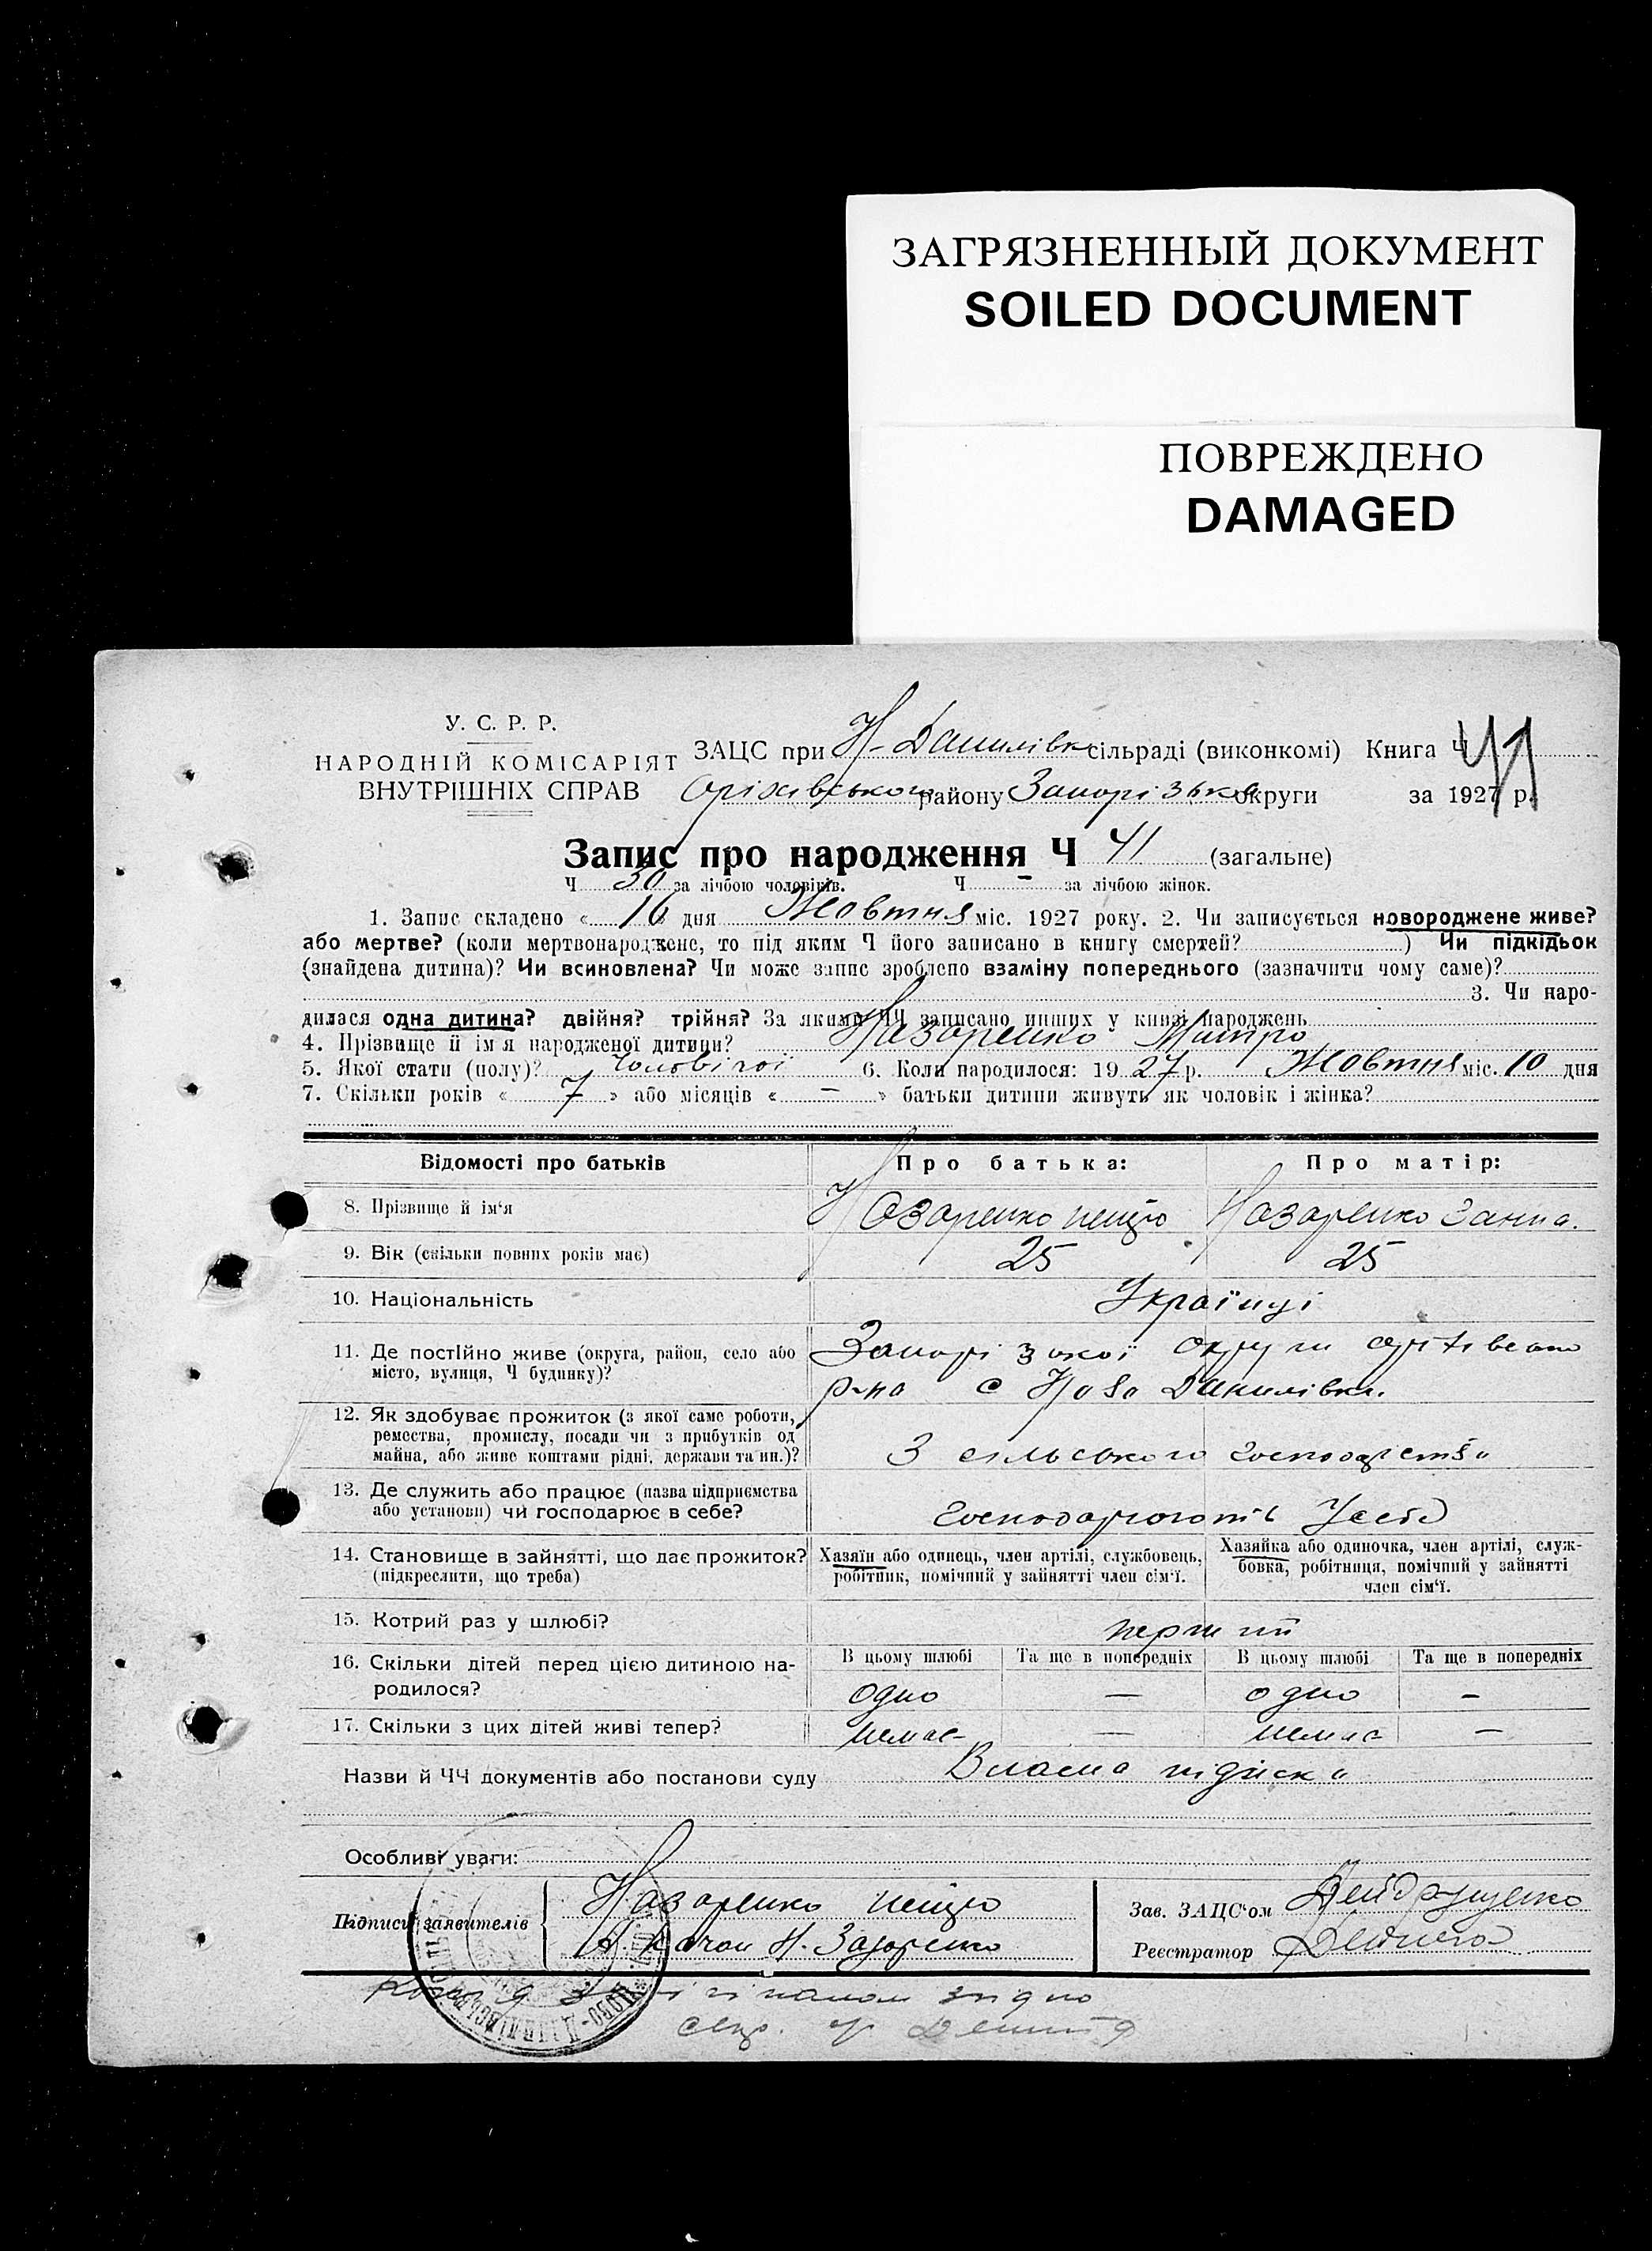 ЗАГРЯЗНЕННЫЙ ДОКУМЕНТ
SOILED DOCUMENT
ПОВРЕЖДЕНО
DAMAGED
У. С. Р. Р.
НАРОДНІЙ КОМІСАРІЯТ
ВНУТРІШНІХ СПРАВ
ЗАЦС при Н-Данилівк сільраді (виконкомі) Книга Ч 41
Оріхівського району Запорізько округи за 1927 р.
Запис про народження Ч 41 (загальне)
Ч 30 за лічбою чоловіків. Ч - за лічбою жінок.
1. Запис складено « 16 » дня Жовтня міс. 1927 року. 2. Чи записується новороджене живе?
або мертве? (коли мертвонароджене, то під яким Ч його записано в книгу смертей? ) Чи підкідьок
(знайдена дитина)? Чи всиновлена? Чи може запис зроблено взаміну попереднього (зазначити чому саме)?
3. Чи наро-
дилася одна дитина? двійня? трійня? За якими ЧЧ записано инших у книзі народжень
4. Прізвище й ім'я народженої дитини? Назаренко Митро
5. Якої стати (полу)? Чоловічої 6. Коли народилося: 1927 р. Жовтня міс. 10 дня
7. Скільки років « 7 » або місяців « — » батьки дитини живуть як чоловік і жінка?
Відомості про батьків Про батька: Про матір:
8. Прізвище й ім'я Назаренко Назаренко Ганна.
9. Вік (скільки повних років має) 25 25
10. Національність Українці
11. Де постійно живе (округа, район, село або
місто, вулиця, Ч будинку)?
Запорізької округи
р-на с Ново Данилівка.
12. Як здобуває прожиток (з якої саме роботи,
ремества, промислу, посади чи з прибутків од
майна, або живе коштами рідні, держави та ин.)?
З сільського господарства
13. Де служить або працює (назва підприємства
або установи) чи господарює в себе?
Господарюють у себе
14. Становище в зайнятті, що дає прожиток?
(підкреслити, що треба)
Хазяїн або одинець, член артілі, службовець,
робітник, помічний у зайнятті член сім'ї.
Хазяйка або одиночка, член артілі, служ-
бовка, робітниця, помічний у зайнятті
член сім'ї.
15. Котрий раз у шлюбі? перший
16. Скільки дітей перед цією дитиною на-
родилося?
В цьому шлюбі Та ще в попередніх В цьому шлюбі Та ще в попередніх
одно — одно -
17. Скільки з цих дітей живі тепер? немає — немає —
Назви й ЧЧ документів або постанови суду Власна підписка
Особливі уваги:
Підписи заявителів
Назаренко
Зав. ЗАЦС'ом
Реєстратор
згідно